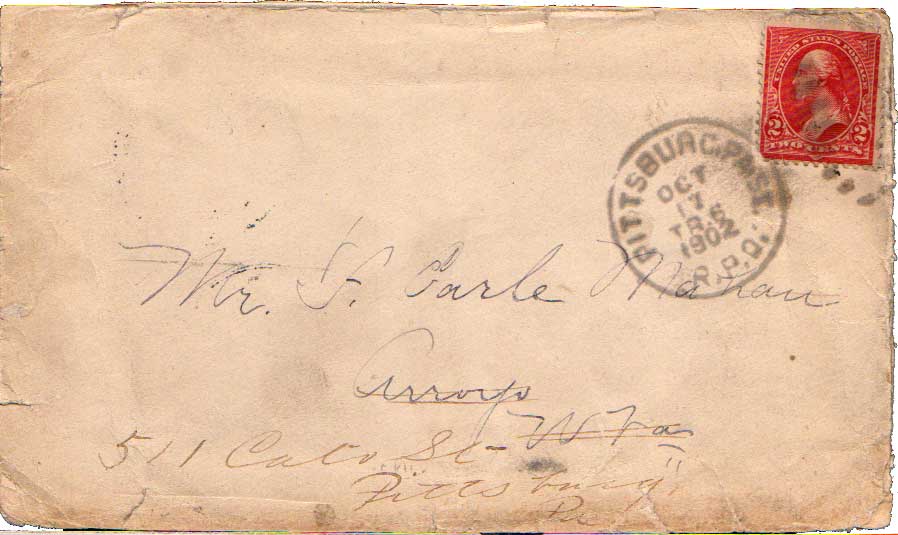 UNITED STATES POSTAGE
2 2
TWO CENTS
PITTSBURG, PA. ST.
OCT
17
TR.6
1902
R.P.O.
Mr. F. Earle Mahan
Arroyo
W Va
511 Cato St
Pittsburg
Pa